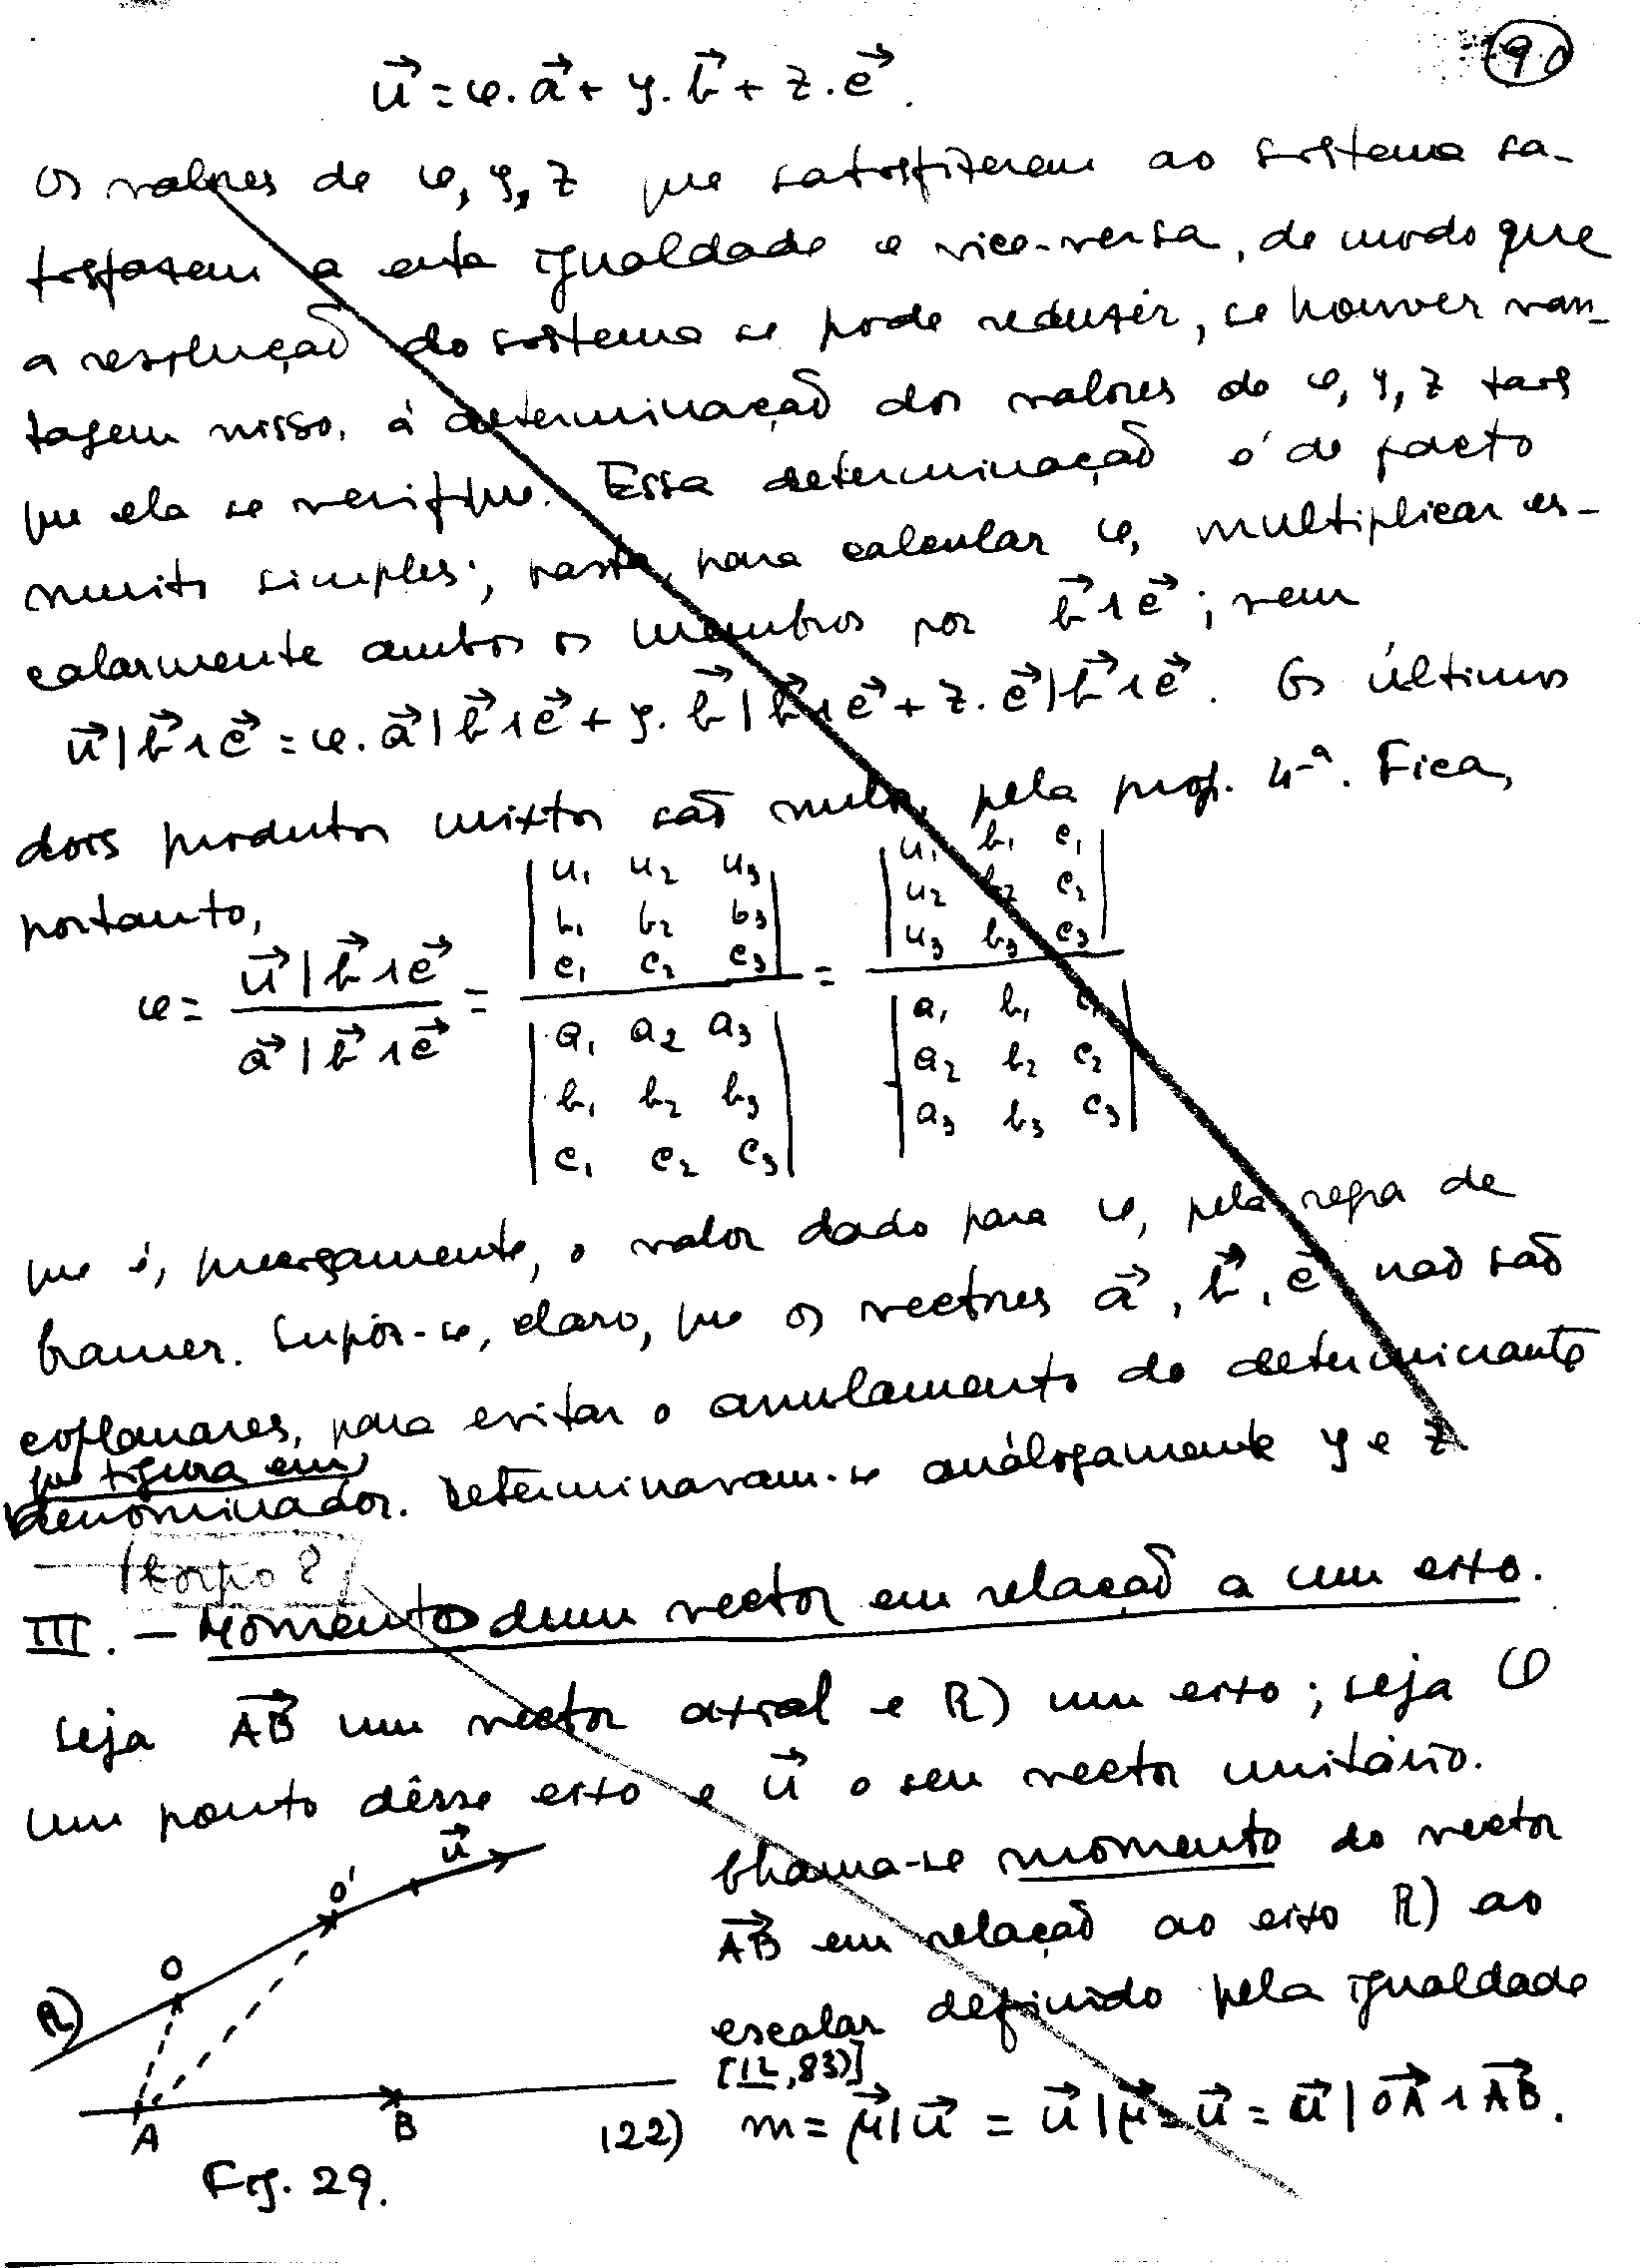 90
u⃗ = x.a⃗ + y.b⃗ + z.c⃗.
Os valores de x, y, z que satisfizerem ao sistema sa-
tisfazem a esta igualdade e vice-versa, de modo que
a resolução do sistema se pode reduzir, se houver van-
tagem nisso, à determinação dos valores de x, y, z tais
que ela se verifique. Essa determinação é de facto
muito simples; basta, para calcular x, multiplicar es-
calarmente ambos os membros por b⃗∧c⃗; vem
u⃗|b⃗∧c⃗ = x.a⃗|b⃗∧c⃗ + y.b⃗|b⃗∧c⃗ + z.c⃗|b⃗∧c⃗. Os últimos
dois produtos mixtos são nulos, pela prop. 4ª. Fica,
portanto,
x = u⃗|b⃗∧c⃗ / a⃗|b⃗∧c⃗ = |u₁ u₂ u₃; b₁ b₂ b₃; c₁ c₂ c₃| / |a₁ a₂ a₃; b₁ b₂ b₃; c₁ c₂ c₃| = |u₁ b₁ c₁; u₂ b₂ c₂; u₃ b₃ c₃| / |a₁ b₁ c₁; a₂ b₂ c₂; a₃ b₃ c₃|
que é, precisamente, o valor dado para x, pela regra de
Cramer. Supôs-se, claro, que os vectores a⃗, b⃗, c⃗ não são
coplanares, para evitar o anulamento do determinante
que figura em
denominador. Determinavam-se anàlogamente y e z
(corpo 8)
III. — Momento dum vector em relação a um eixo.
Seja A⃗B um vector axial e R) um eixo; seja O
um ponto dêsse eixo e u⃗ o seu vector unitário.
Chama-se momento do vector
A⃗B em relação ao eixo R) ao
escalar definido pela igualdade
[12,83)]
122) m = μ⃗|u⃗ = u⃗|μ⃗ = u⃗ = u⃗|O⃗A∧A⃗B.
R) O O' u⃗
A B
Fig. 29.